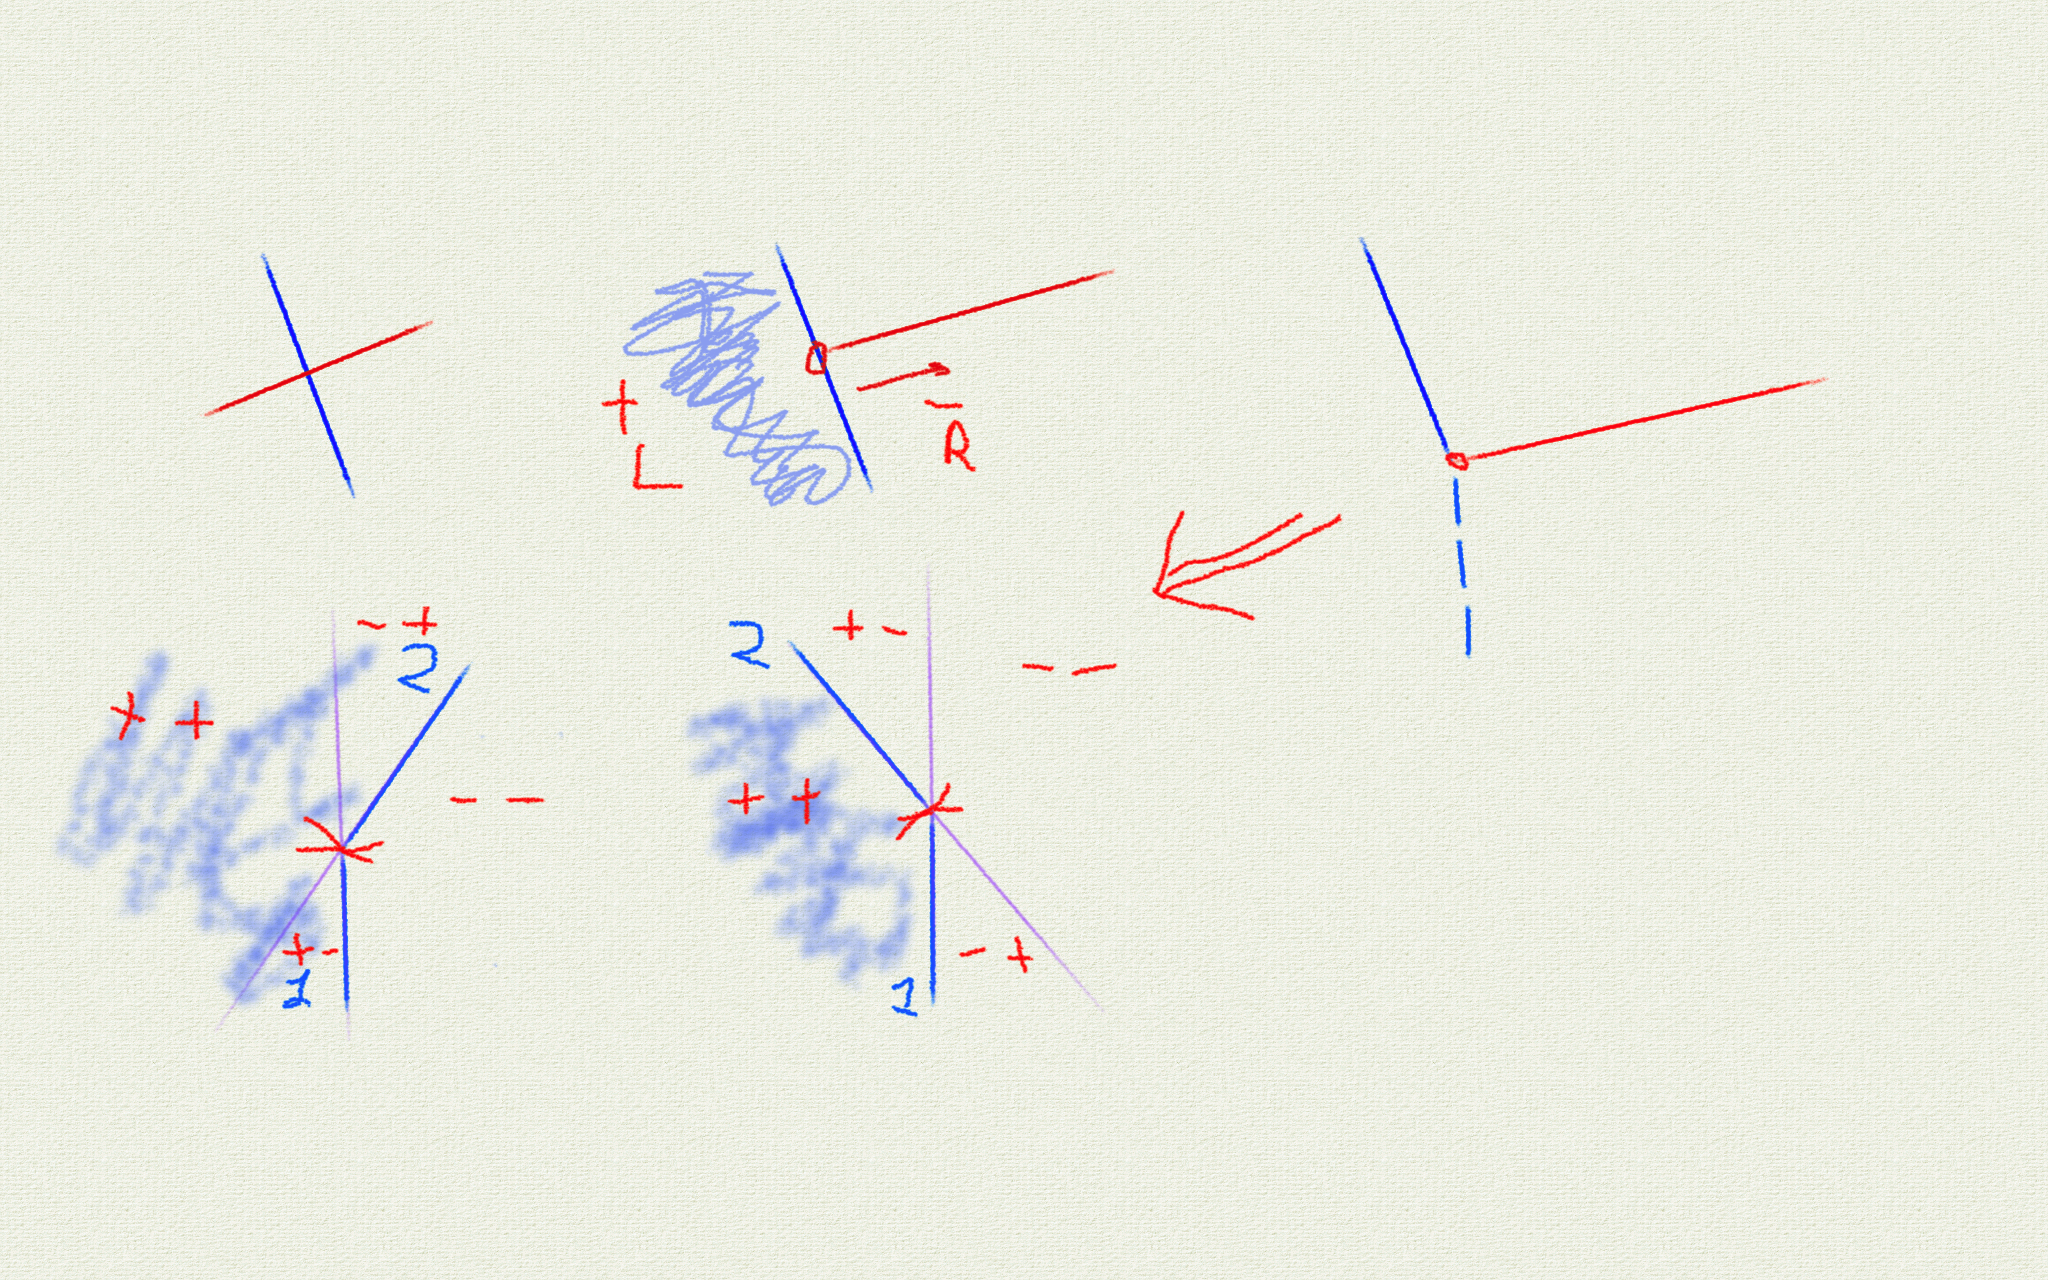 + -
L R
- +
2
+ +
- -
+ -
1
+ -
2
- -
+ +
- +
1